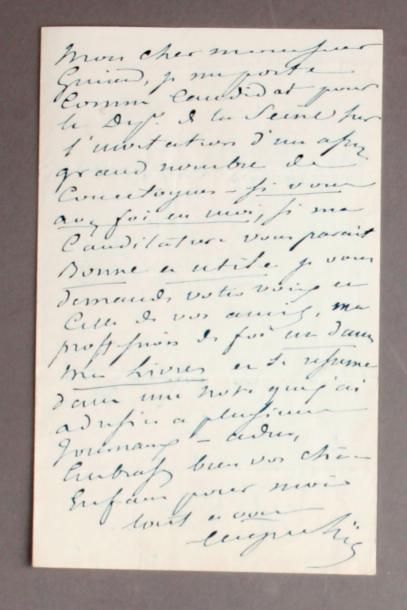 Mon cher monsieur
je me porte
comme candidat pour
le Dépt. de la Seine sur
l'invitation d'un assez
grand nombre de
Concitoyens – si vous
avez foi en moi, si ma
Candidature vous parait
Bonne et utile je vous
demande votre voix et
Celle de vos amis, ma
profession de foi est dans
Mes Livres et se résume
dans une note que j'ai
adressée a plusieurs
Journaux – adieu,
Embrassez bien vos chers
Enfans pour moi
tout a vous